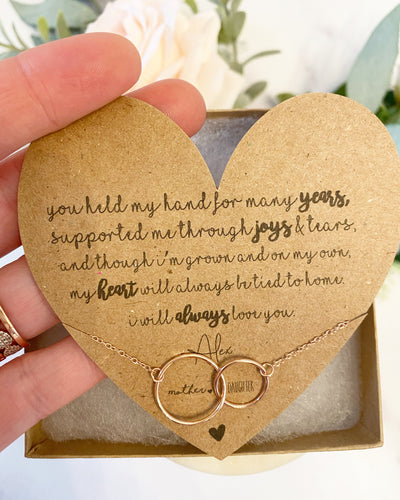 you held my hand for many years,
supported me through joys & tears,
and though i'm grown and on my own,
my heart will always be tied to home.
i will always love you.
Alex
mother DAUGHTER